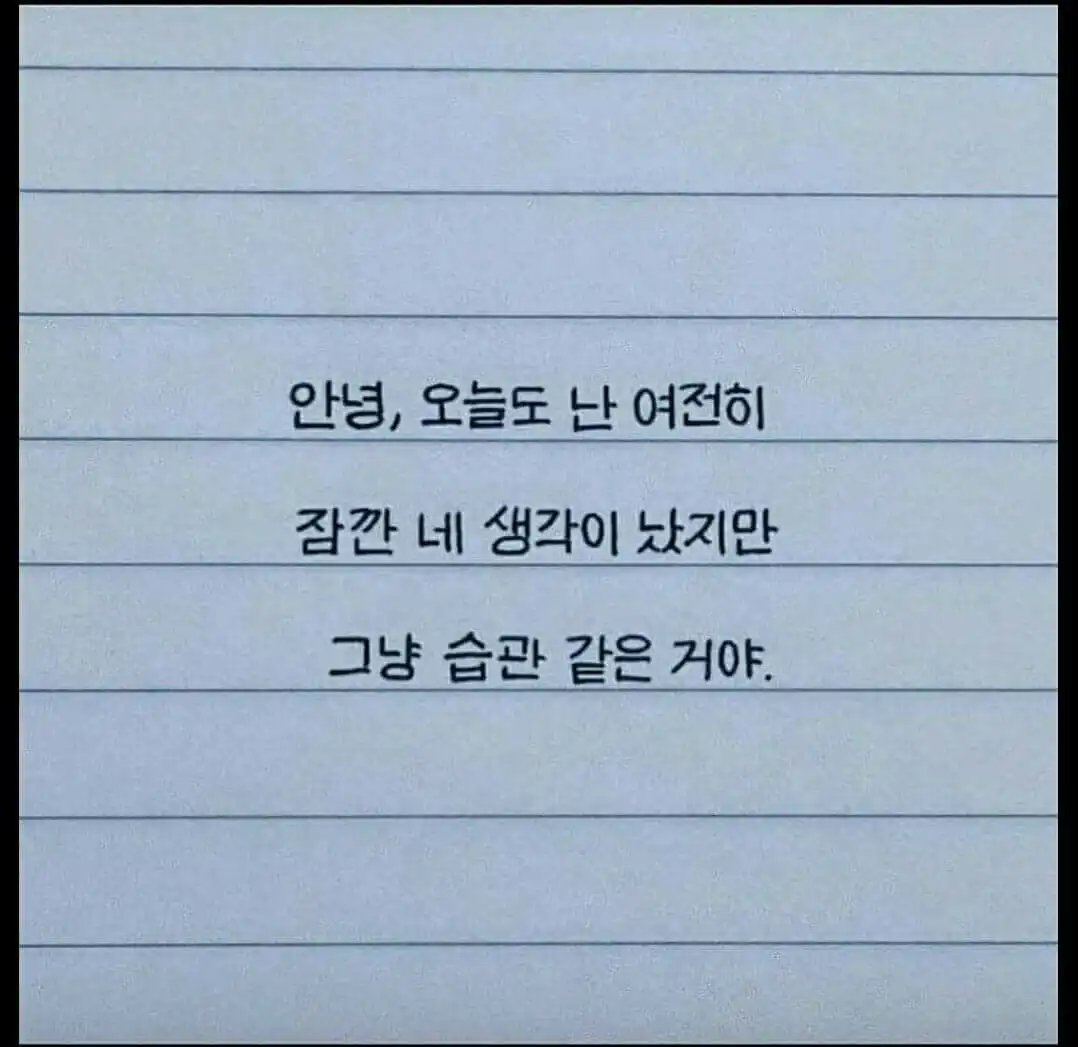 안녕, 오늘도 난 여전히
잠깐 네 생각이 났지만
그냥 습관 같은 거야.